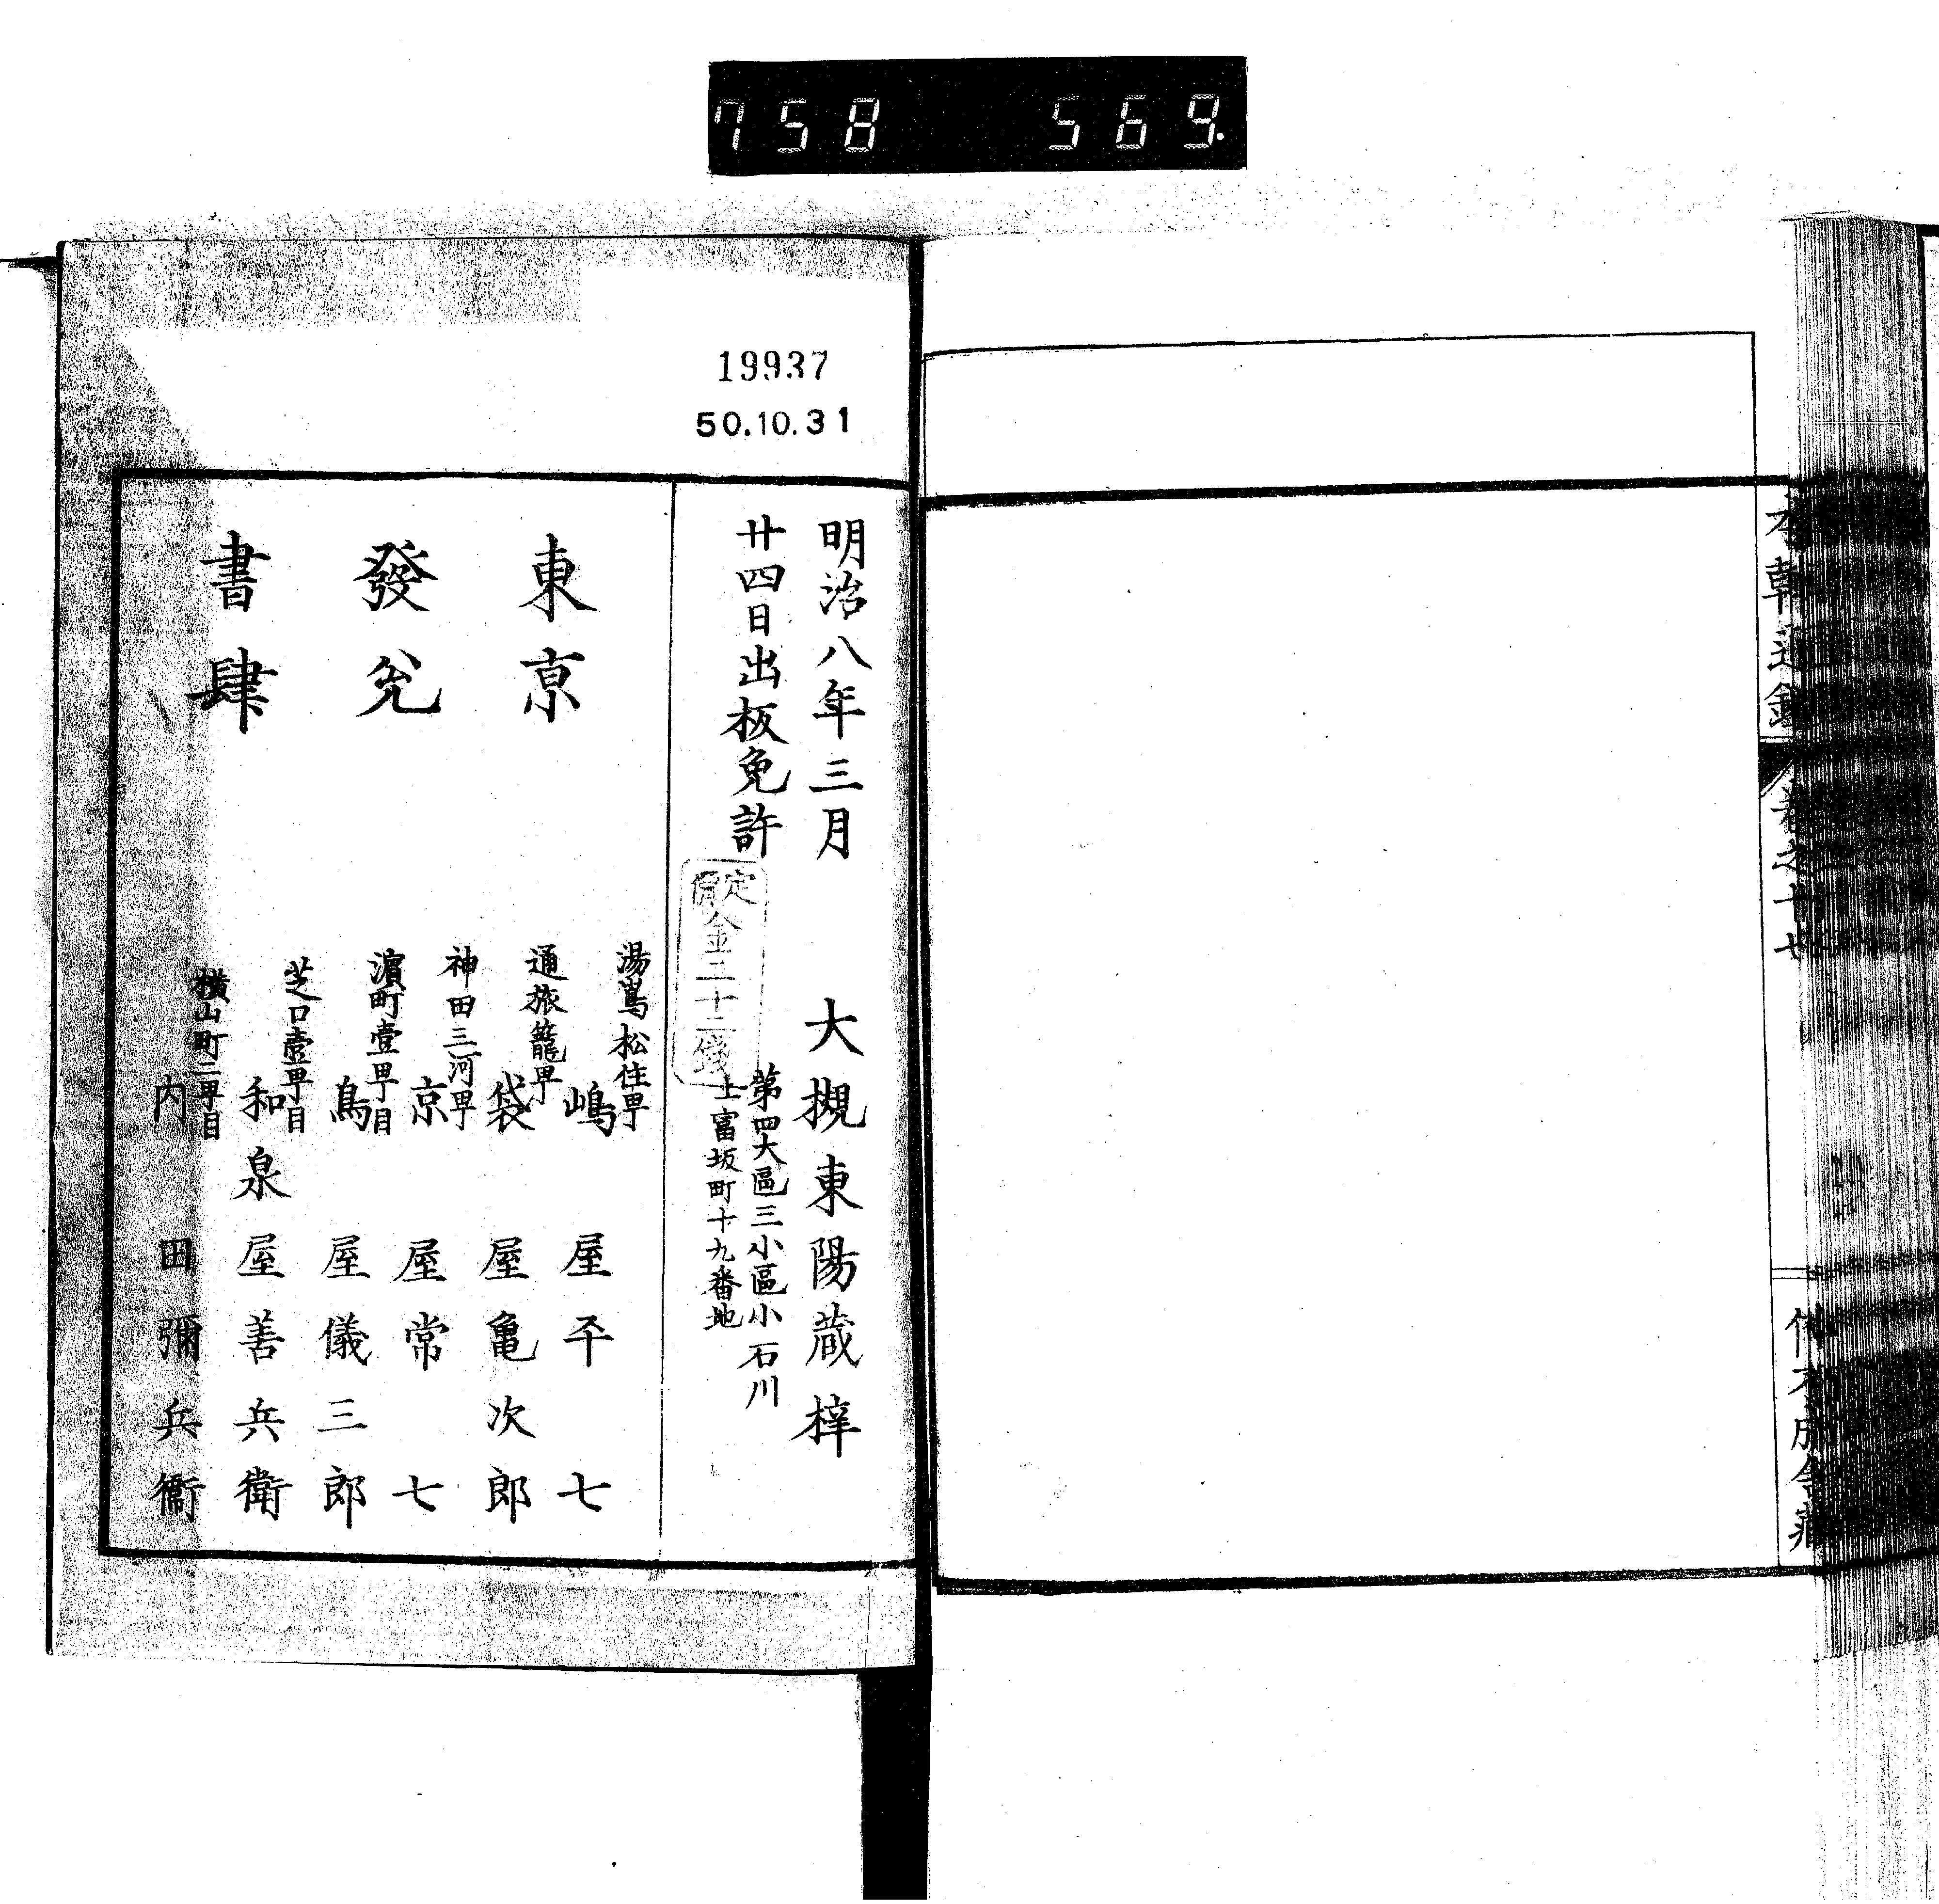 758 569.
本朝通鑑
卷之十七
19937
50.10.31
明治八年三月
廿四日出板免許
定價金二十二錢
大槻東陽蔵梓
第四大區三小區小石川
上富坂町十九番地
東京
發兌
書肆
湯嶌松住町
嶋屋平七
通旅籠町
袋屋亀次郎
神田三河町
京屋常七
濵町壹町目
鳥屋儀三郎
芝口壹町目
和泉屋善兵衛
横山町二町目
内田彌兵衞